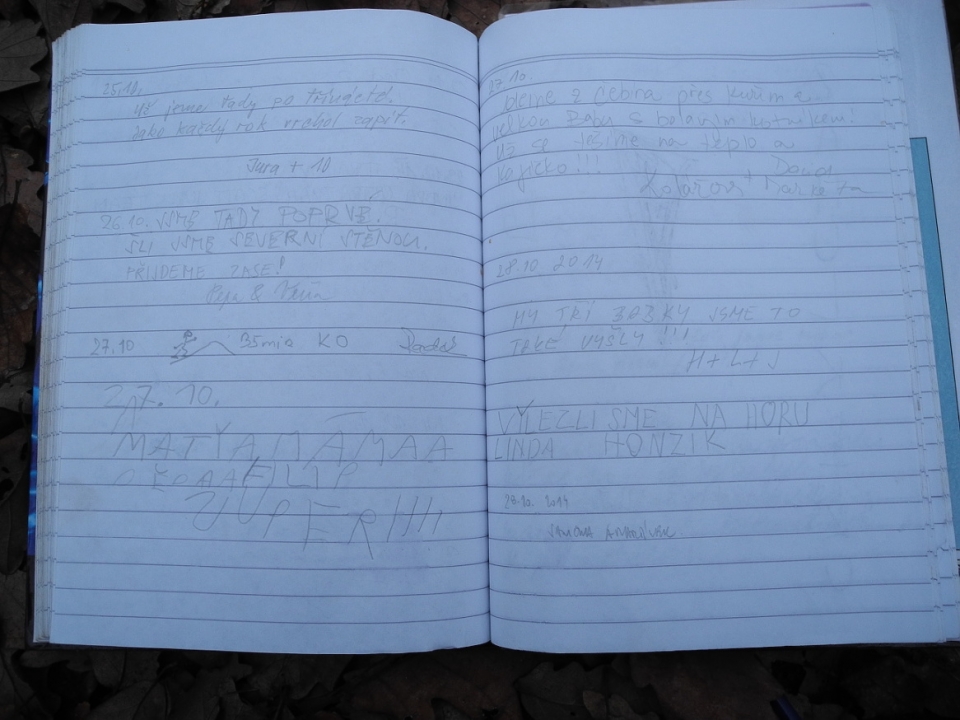 25.10.
Už jsme tady po třicáté.
Jako každý rok vrchol zapít.
Jura + 10
26.10. JSME TADY POPRVÉ!
ŠLI JSME SEVERNÍ STĚNOU.
PŘIJDEME ZASE!
Pepa &
27.10 35min KO
27.10.
MATYA MÁMAA
FILIP
SUPER!!!
27.10.
Jdeme z Čebína přes Kuřim a
velkou Babu s bolavým kotníkem!
Už se těšíme na teplo a
kafíčko!!!
David
Kolářovi + Markéta
28.10 2014
MY TŘI BABKY JSME TO
TAKÉ VYŠLY!!!
H + L + J
VYLEZLI SME NA HORU
LINDA HONZIK
28.10. 2014